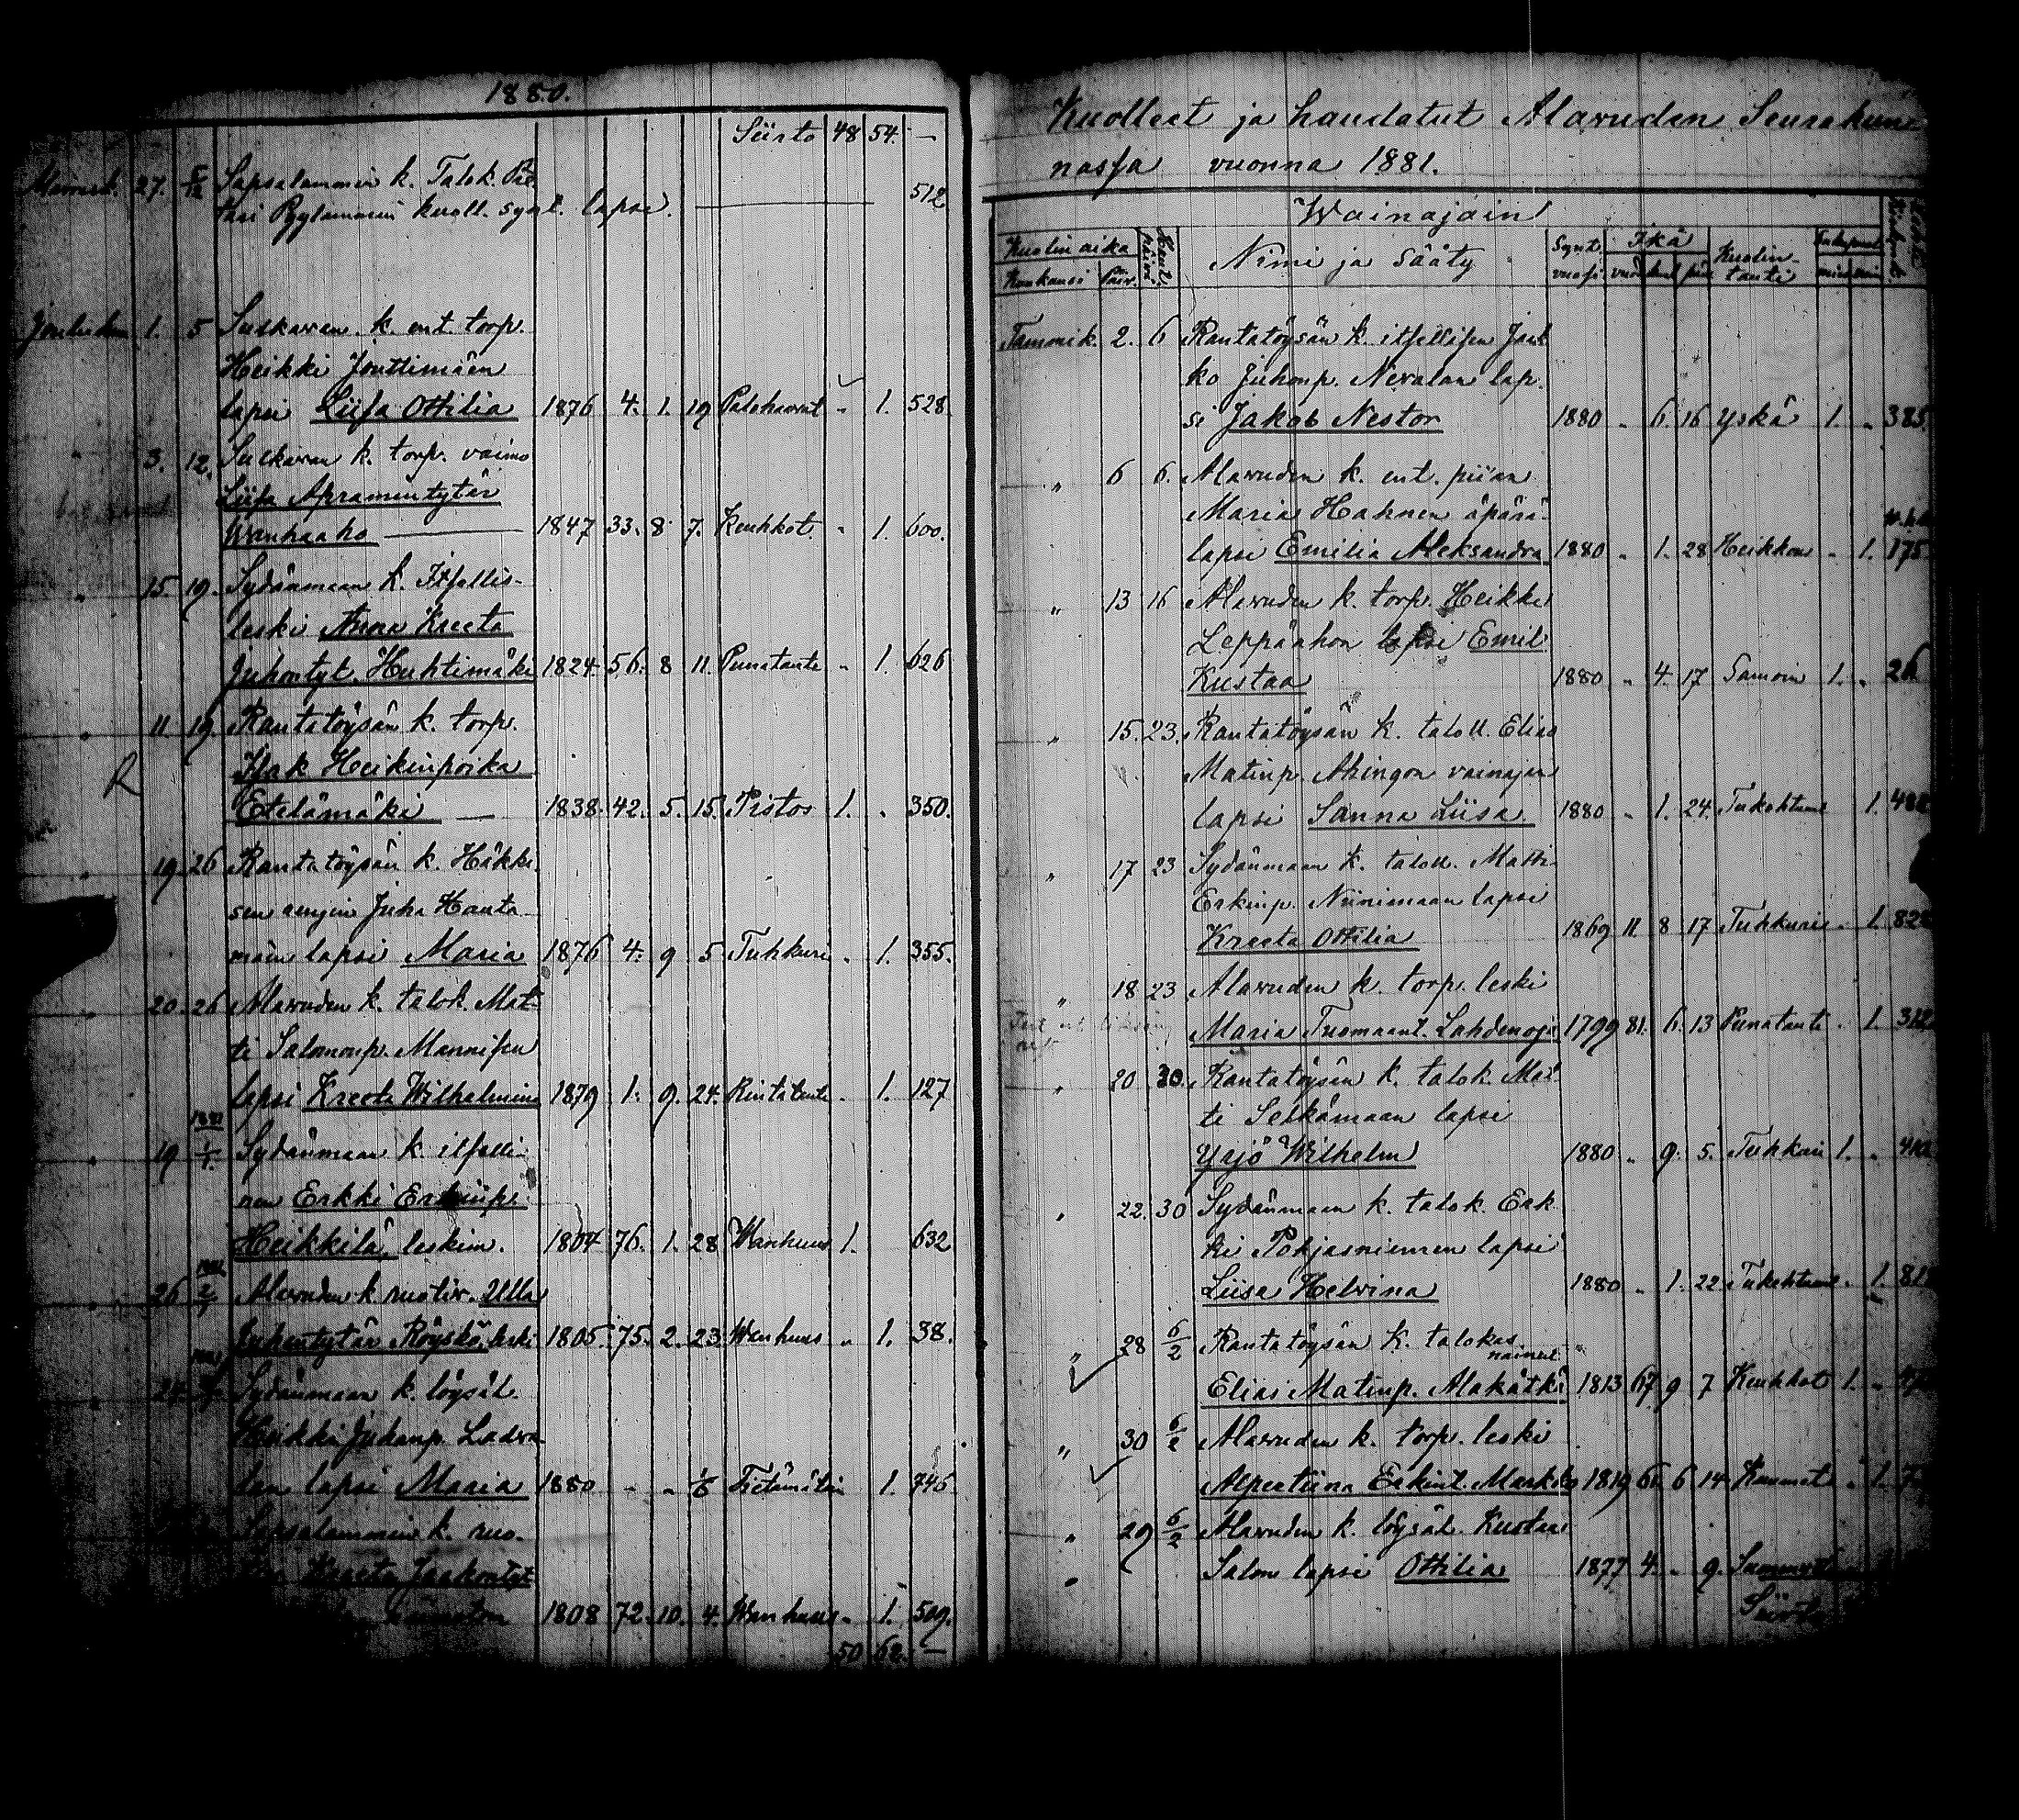 1880.
Siirto 48 54. —
27. 5/12 Sapsalammin k. Talok.
kuoll. synt. lapse. 512
Jouluskun 1. 5 Sulkavan k. ent. torp.
Heikki Jouttimäen
lapsi Liisa Ottilia 1876 4. 1. 19 Palohaavat „ 1. 528
„ 3. 12. Sulkavan k. torp. vaimo
Liisa Apramintytär
Wanhaaho — 1847 33. 8 7. Keuhkot. „ 1. 600.
„ 15. 19. Sydänmaan k. Itsellis-
leski Anna Kreeta
Juhontyt. Huhtimäki 1824. 56. 8 11. Punatauti „ 1. 626
„ 11 19 Rantatöysän k. torp.
R Isak Heikinpoika
Etelämäki — 1838. 42. 5. 15. Pistos 1. „ 350.
„ 19. 26 Rantatöysän k. Häkki-
sen rengin Juha Hauta-
mäin lapsi Maria 1876 4. 9 5 Tuhkuri „ 1. 355.
„ 20. 26 Alavuden k. talok. Mat-
ti Salomonp. Mannisen
lapsi Kreeta Wilhelmina 1879 1. 9. 24. Rintatauti „ 1. 127
1881
„ 19 1/1. Sydänmaan k. itselli-
nen Erkki Erkinp.
Heikkilä, leskim. 1804 76. 1. 28 Wanhuus 1. 632
1881
„ 26 2/1 Alavuden k. ruotiv. Ulla
Juhontytär Röyskö, leski 1805. 75. 2. 23. Wanhuus „ 1. 38.
Sydänmaan k. löysäl.
Heikki Juhonp. Ladva-
lan lapsi Maria 1880 - „ 1/6 1. 745
Sapsalammin k. ruo-
Kreeta Jaakontyt
1808 72. 10. 4. Wanhuus „ 1. 509.
50 62. —
Kuolleet ja haudatut Alavuden Seurakun-
nassa vuonna 1881.
Wainajain
Kuolin aika Nimi ja sääty Synt. Ikä Kuolin-
Kuukausi Päiv. vuosi vuos. kuuk. päiv. tauti
Tammik. 2. 6 Rantatöysän k. itsellisen Jaak-
ko Juhonp. Nevalan lap-
si Jakob Nestor 1880 „ 6. 16 Yskä 1. „ 385.
„ 6 6. Alavuden k. ent. piian
Maria Hahnen äpärä-
lapsi Emilia Aleksandra 1880 „ 1. 28 Heikkous „ 1. 175
„ 13 16 Alavuden k. torp. Heikki
Leppäahon lapsi Emil
Kustaa 1880 „ 4. 17 Samoin 1. „ 26
„ 15. 23. Rantatöysän k. taloll. Elias
Matinp. Akingon vainajan
lapsi Sanna Liisa. 1880 „ 1. 24. Tukehtunut 1.
„ 17 23 Sydänmaan k. taloll. Matti
Erkinp. Niinimaan lapsi
Kreeta Ottilia 1869 11 8 17 Tuhkuri „ 1.
„ 18 23 Alavuden k. torp. leski
Maria Tuomaant. Lahdenoja 1799 81. 6. 13 Punatauti „ 1. 312
„ 20 30. Rantatöysän k. talok. Mat-
ti Seikämaan lapsi
Yrjö Wilhelm 1880 „ 9. 5. Tuhkuri 1. „
„ 22. 30 Sydänmaan k. talok. Erk-
ki Pohjasniemen lapsi
Liisa Helviina 1880 „ 1. 22 Tukehtunut „ 1.
„ 28 6/2 Rantatöysän k. talokas
nainut
Elias Matinp. Alakätkä 1813 67. 9 7 Keuhkot 1. „
„ 30 6/2 Alavuden k. torp. leski
Alpertiina Erkint. Markki 1819 61. 6 14. „ 1.
„ 29 6/2 Alavuden k. löysäl. Kustaa
Salon lapsi Ottilia 1877 4. „ 9.
Siirto